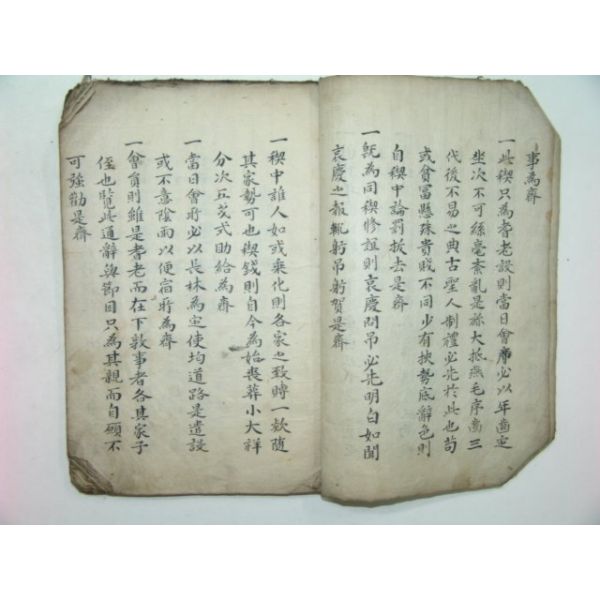 事為齊
一此稧只為耆老設則當日會席必以年齒定
坐次不可絲毫紊亂是旀大抵燕毛序齒三
代後不易之典古聖人制禮必先於此也苟
或貧富懸殊貴賤不同少有挾勢底辭色則
自稧中論罰拔去是齊
一旣為同稧修誼則哀慶問吊必先明白如聞
哀慶之報輒躬吊躬賀是齊
一稧中誰人如或乘化則各家之致時一欵随
其家勢可也稧錢則自今為始丧葬小大祥
分次五戔式助給為齊
一當日會所必以長林為定使均道路是遣設
或不意陰雨以便宿所為齊
一會員則雖是耆老而在下敦事者各其家子
侄也覽此通辭與節目只為其親而自顧不
可強勸是齊